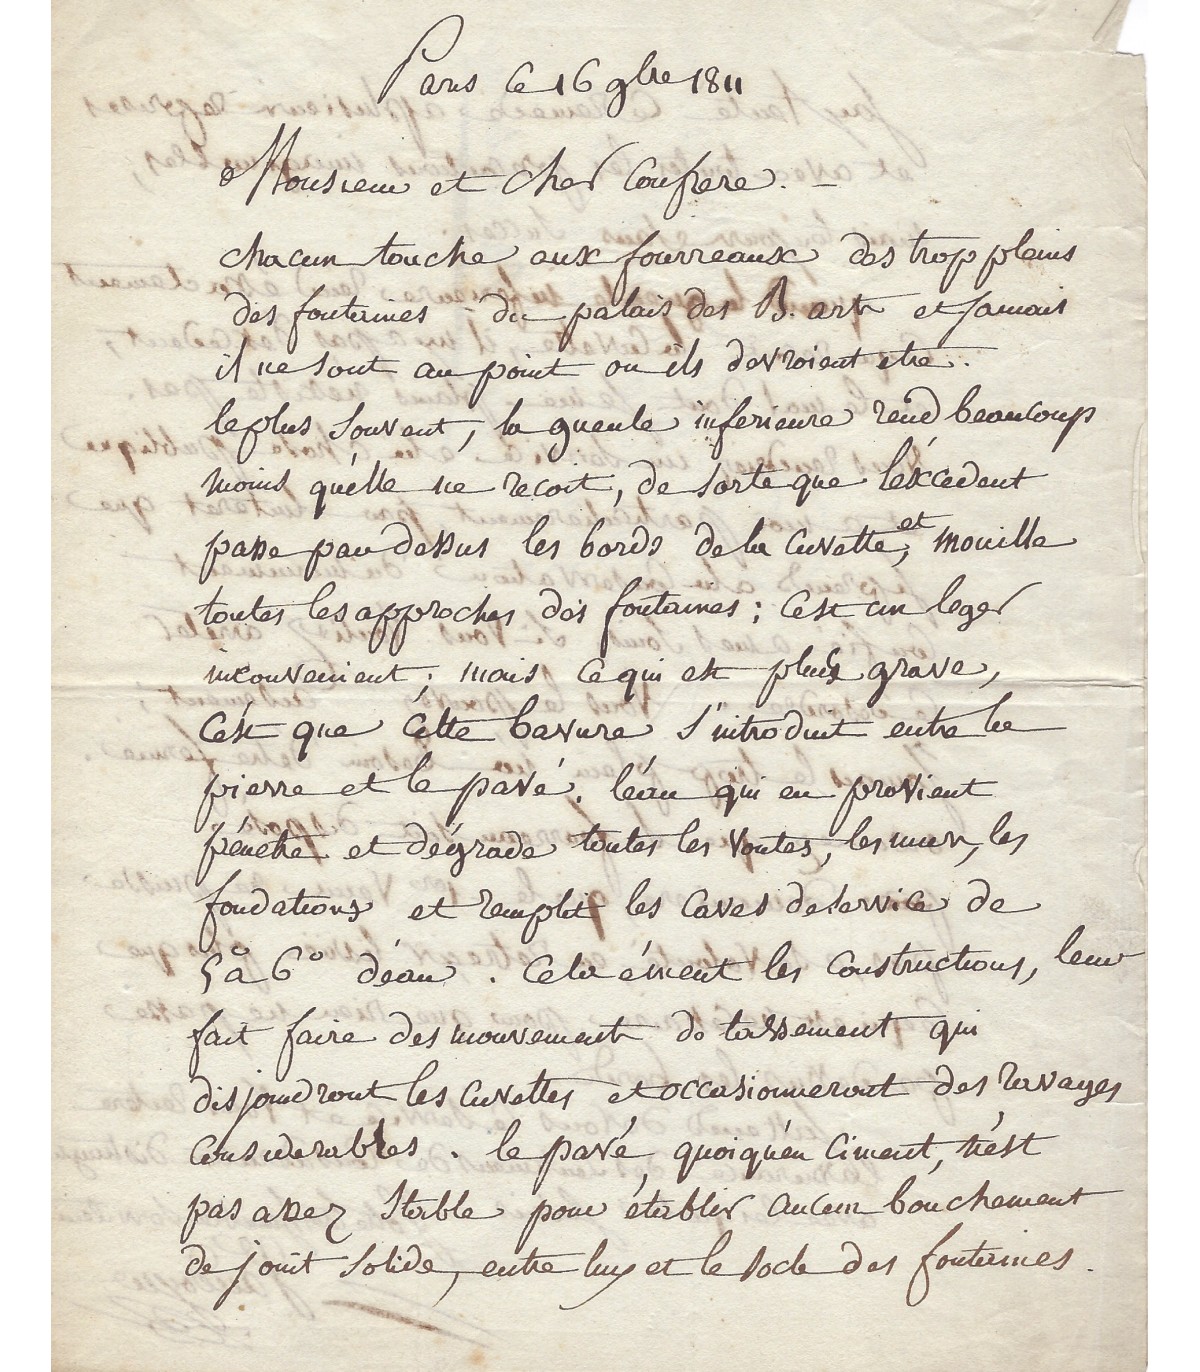 Paris ce 16 9bre 1811
Monsieur et cher Confrere. -
chacun touche aux fourreaux des trop pleins
des fontaines du palais des B. arts et jamais
il ne sont au point ou ils devroient etre.
le plus souvent, la gueule inferieure rend beaucoup
moins qu'elle ne recoit, de sorte que l'éxcedent
passe par dessus les bords de la Cuvette, et mouille
toutes les approches des fontaines; C'est un leger
inconvenient; mais ce qui est plus grave,
C'est que cette bavure s'introduit entre la
pierre et le pavé. l'éau qui en provient
pénetre et dégrade toutes les Voutes, les murs, les
fondations et remplit les Caves de service de
5° a 6° d'éau. Cela émeut les Constructions, leur
fait faire des mouvements de tassement qui
disjoindront les Cuvettes et occasionneront des ravages
Considerables. le pavé, quoiqu'én Ciment, n'ést
pas assez Stable pour établir aucun bouchement
de joint Solide, entre luy et le socle des fontaines.